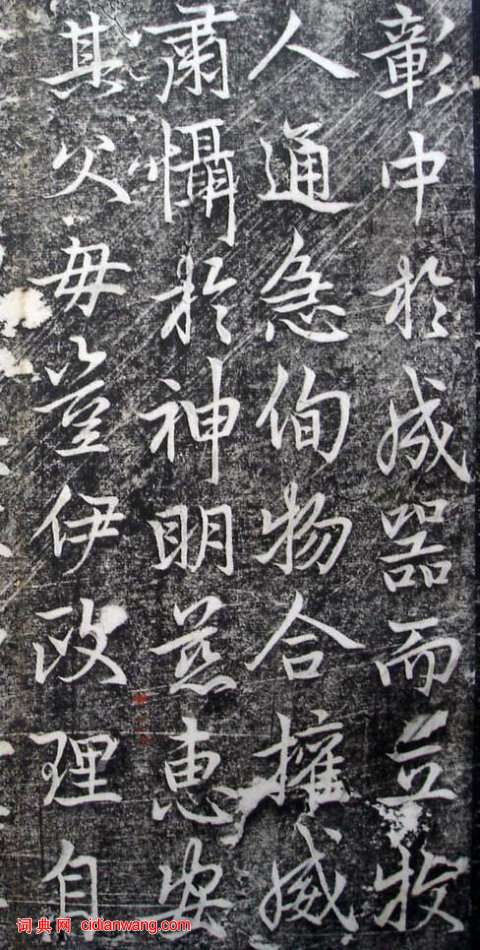 彰中於成器而立牧
人通急侚物合擁威
肅懾於神明慈惠安
其父母豈伊政理自
词典网 cidianwang.com